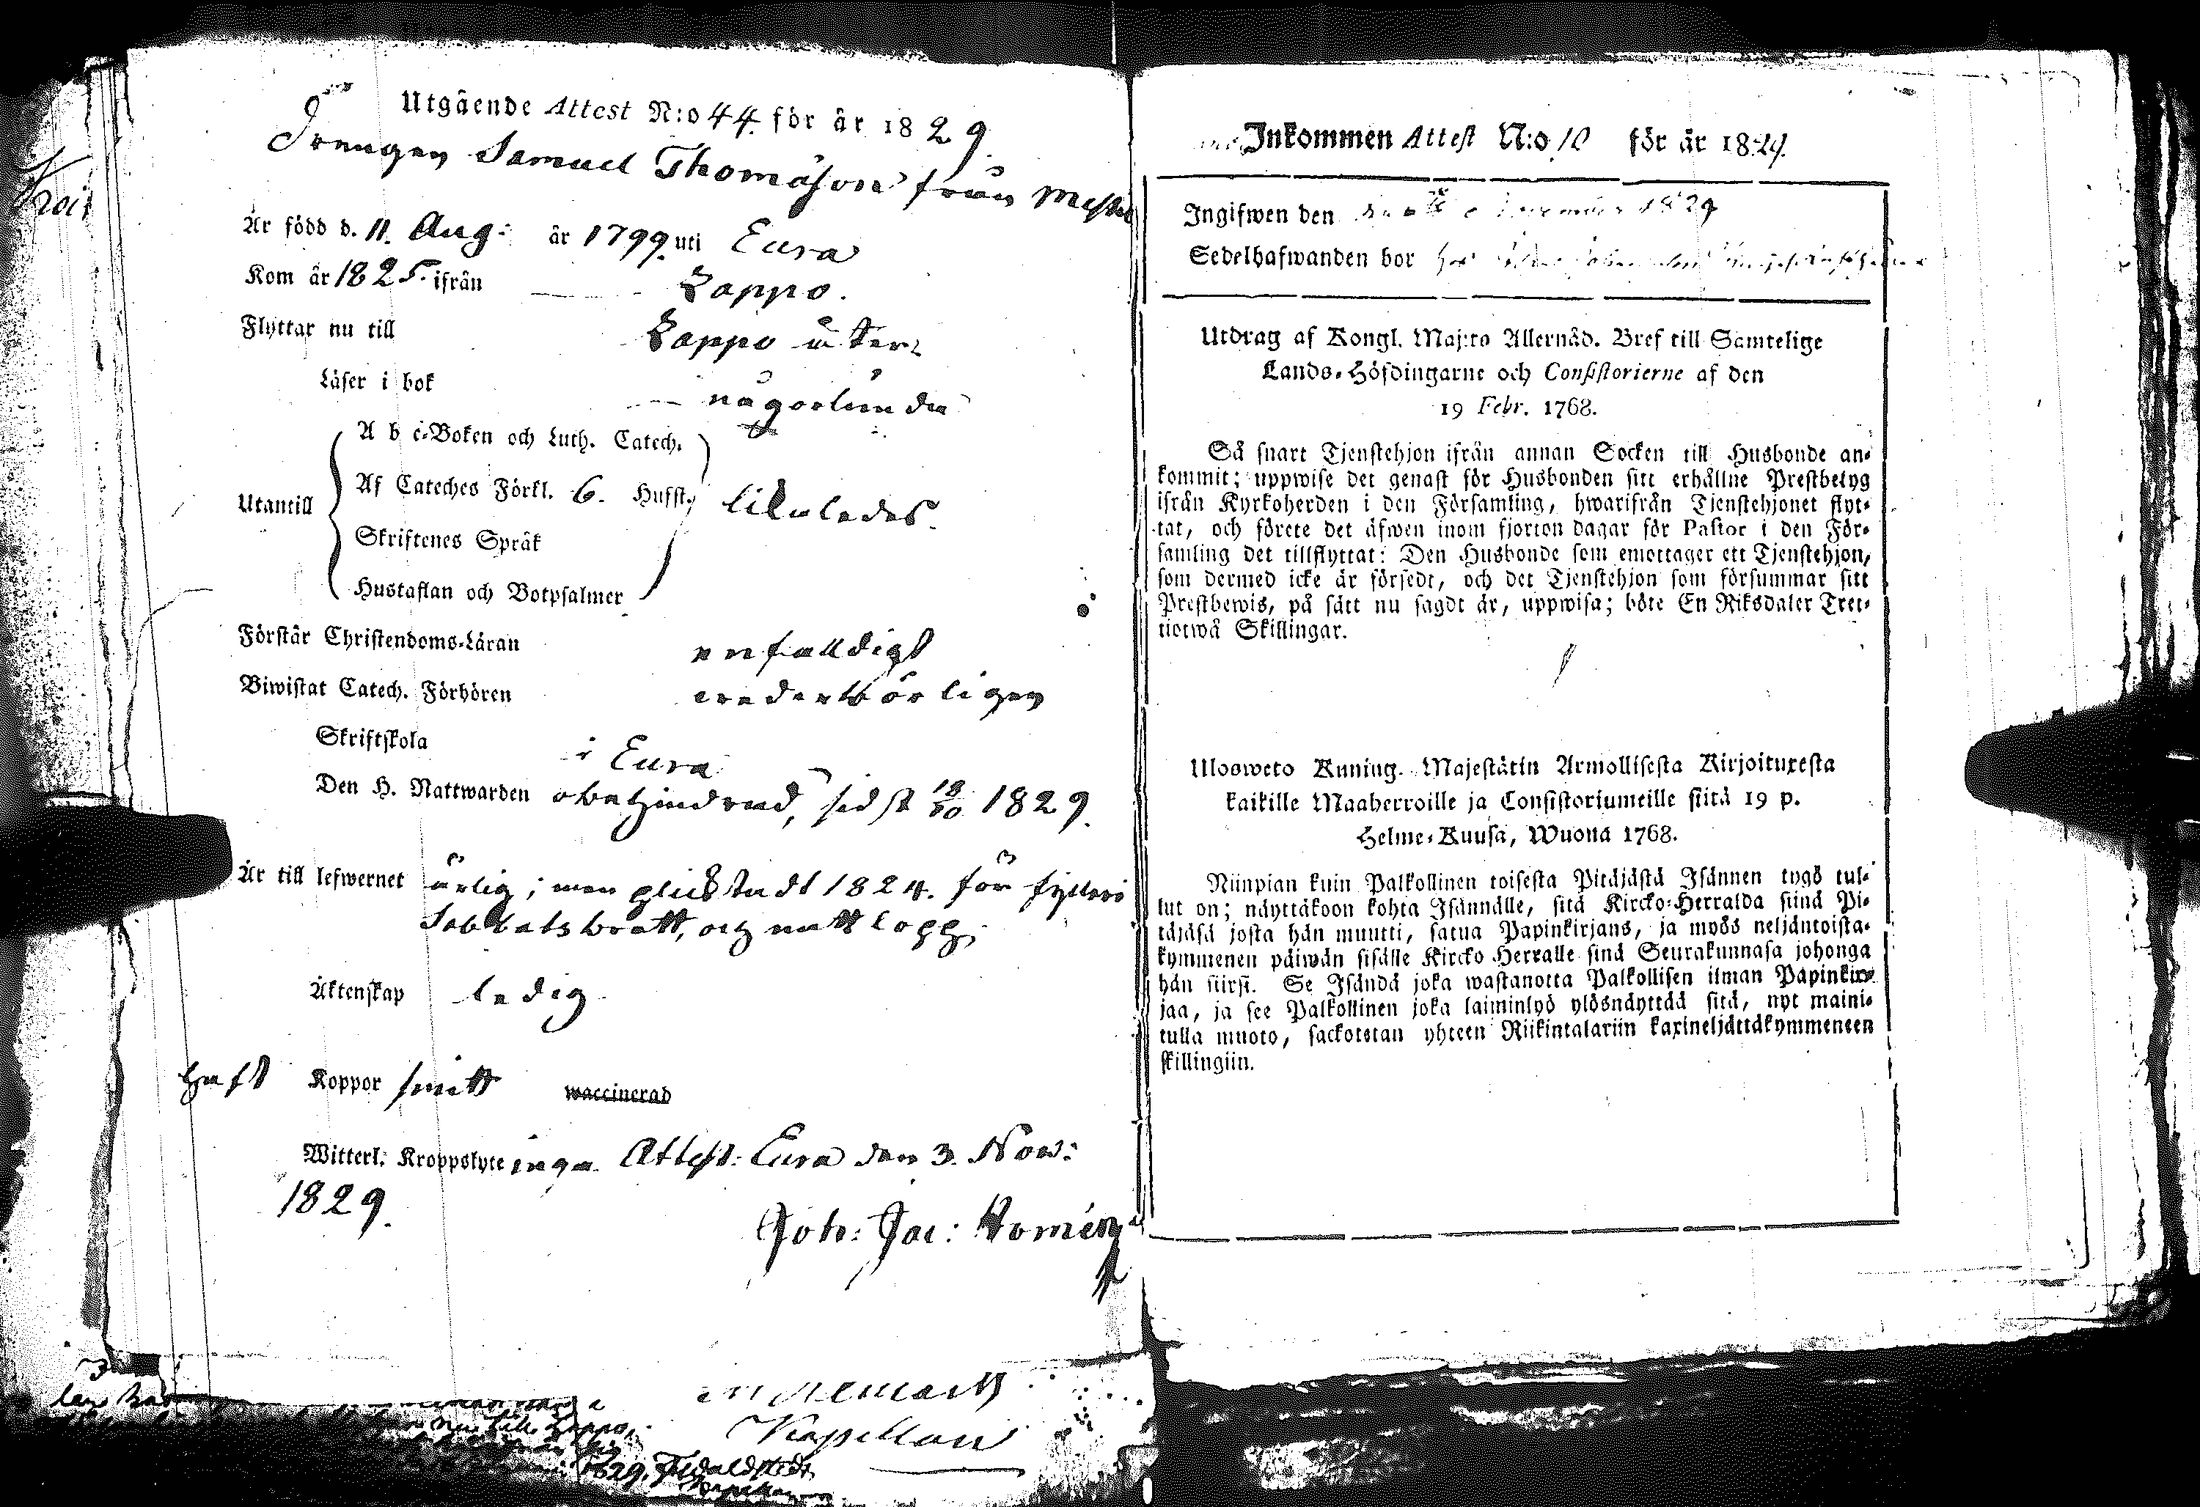 Utgående Attest N:o 44. för år 1829.
Drengen Samuel Thomasson från
Är född d. 11. Aug: år 1799. uti Eura
Kom år 1825. ifrån Lappo.
Flyttar nu till Lappo åter
Läser i bok någorlunda
A b c-Boken och Luth. Catech.
Af Cateches Förkl. 6. Hufst.
Utantill likaledes.
Skriftenes Språk
Hustaflan och Botpsalmer
Förstår Christendoms-Läran enfaldigt
Biwistat Catech. Förhören wederbörligen
Skriftskola i Eura
Den H. Nattwarden obehindrad, sidst 18/10 1829.
Är till lefwernet ärlig; men plicktadt 1824. för fylleri
Sabbatsbrott, och nattlopp.
Äktenskap ledig
haft Koppor smitt waccinerad
Witterl. Kroppslyte inga. Attest: Eura den 3. Now:
1829.
Joh: Jac: Homén
Kapellan
1829.
Inkommen Attest N:o 10 för år 1829.
Ingifwen den 1829
Sedelhafwanden bor hos
Utdrag af Kongl. Maj:ts Allernåd. Bref till Samtelige
Lands-Höfdingarne och Consistorierne af den
19 Febr. 1768.
Så snart Tjenstehjon ifrån annan Socken till Husbonde an-
kommit; uppwise det genast för Husbonden sitt erhållne Prestbetyg
ifrån Kyrkoherden i den Församling, hwarifrån Tjenstehjonet flyt-
tat, och förete det äfwen inom fjorton dagar för Pastor i den För-
samling det tillflyttat: Den Husbonde som emottager ett Tjenstehjon,
som dermed icke är försedt, och det Tjenstehjon som försummar sitt
Prestbewis, på sätt nu sagdt är, uppwisa; böte En Riksdaler Tret-
tiotwå Skillingar.
Ulosweto Kuning. Majestätin Armollisesta Kirjoituxesta
kaikille Maaherroille ja Consistoriumeille siitä 19 p.
Helme-Kuusa, Wuona 1768.
Niinpian kuin Palkollinen toisesta Pitäjästä Isännen tygö tul-
lut on; näyttäkoon kohta Isännälle, sitä Kircko-Herralda siinä Pi-
täjäsä josta hän muutti, satua Papinkirjans, ja myös neljäntoista-
kymmenen päiwän sisälle Kircko Herralle sinä Seurakunnasa johonga
hän siirsi. Se Isändä joka wastanotta Palkollisen ilman Papinkir-
jaa, ja see Palkollinen joka laiminlyö ylösnäyttää sitä, nyt maini-
tulla muoto, sackotetan yhteen Riikintalariin kaxineljättäkymmeneen
skillingiin.